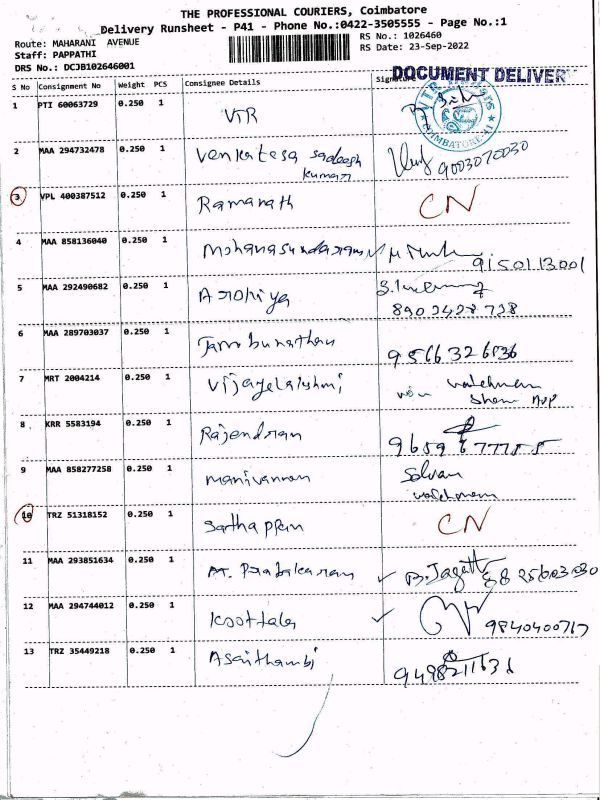 THE PROFESSIONAL COURIERS, Coimbatore
Delivery Runsheet - P41 - Phone No.:0422-3505555 - Page No.:1
Route: MAHARANI AVENUE
RS No.: 1026460
Staff: PAPPATHI
RS Date: 23-Sep-2022
DRS No.: DCJB102646001
DOCUMENT DELIVER
S No Consignment No Weight PCS Consignee Details Signature
1 PTI 60063729 0.250 1 VTR
COIMBATORE
2 MAA 294732478 0.250 1 Venkatesa Sadeesh
kumar 9003070030
3 VPL 400387512 0.250 1 Ramanath CN
4 MAA 858136040 0.250 1 Mohanasundaram
9150113001
5 MAA 292490682 0.250 1
8902428728
6 MAA 289703037 0.250 1 Jambunathan 9566326536
7 MRT 2004214 0.250 1 Vijayelakshmi watchman
8 KRR 5583194 0.250 1 Rajendram
9 MAA 858277258 0.250 1 manivannan Selvan
watchman
10 TRZ 51318152 0.250 1 CN
11 MAA 293851634 0.250 1 PT. Prabakaram
12 MAA 294744012 0.250 1 9840400717
13 TRZ 35449218 0.250 1 Asaithambi